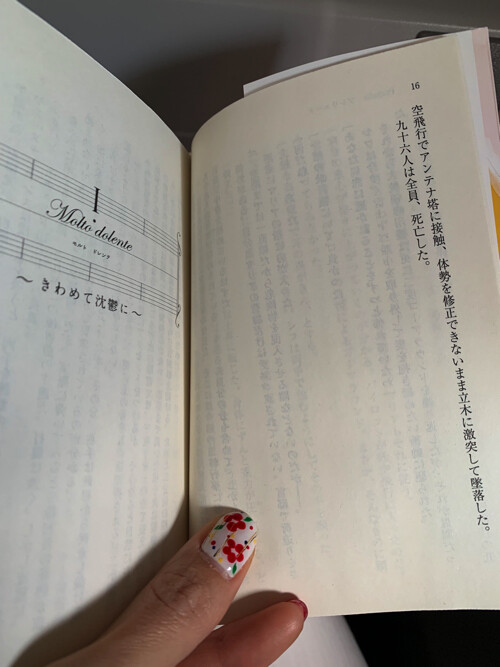 16
空飛行でアンテナ塔に接触、体勢を修正できないまま立木に激突して墜落した。
九十六人は全員、死亡した。
I.
Molto dolente
モルト ドレンテ
～きわめて沈鬱に～